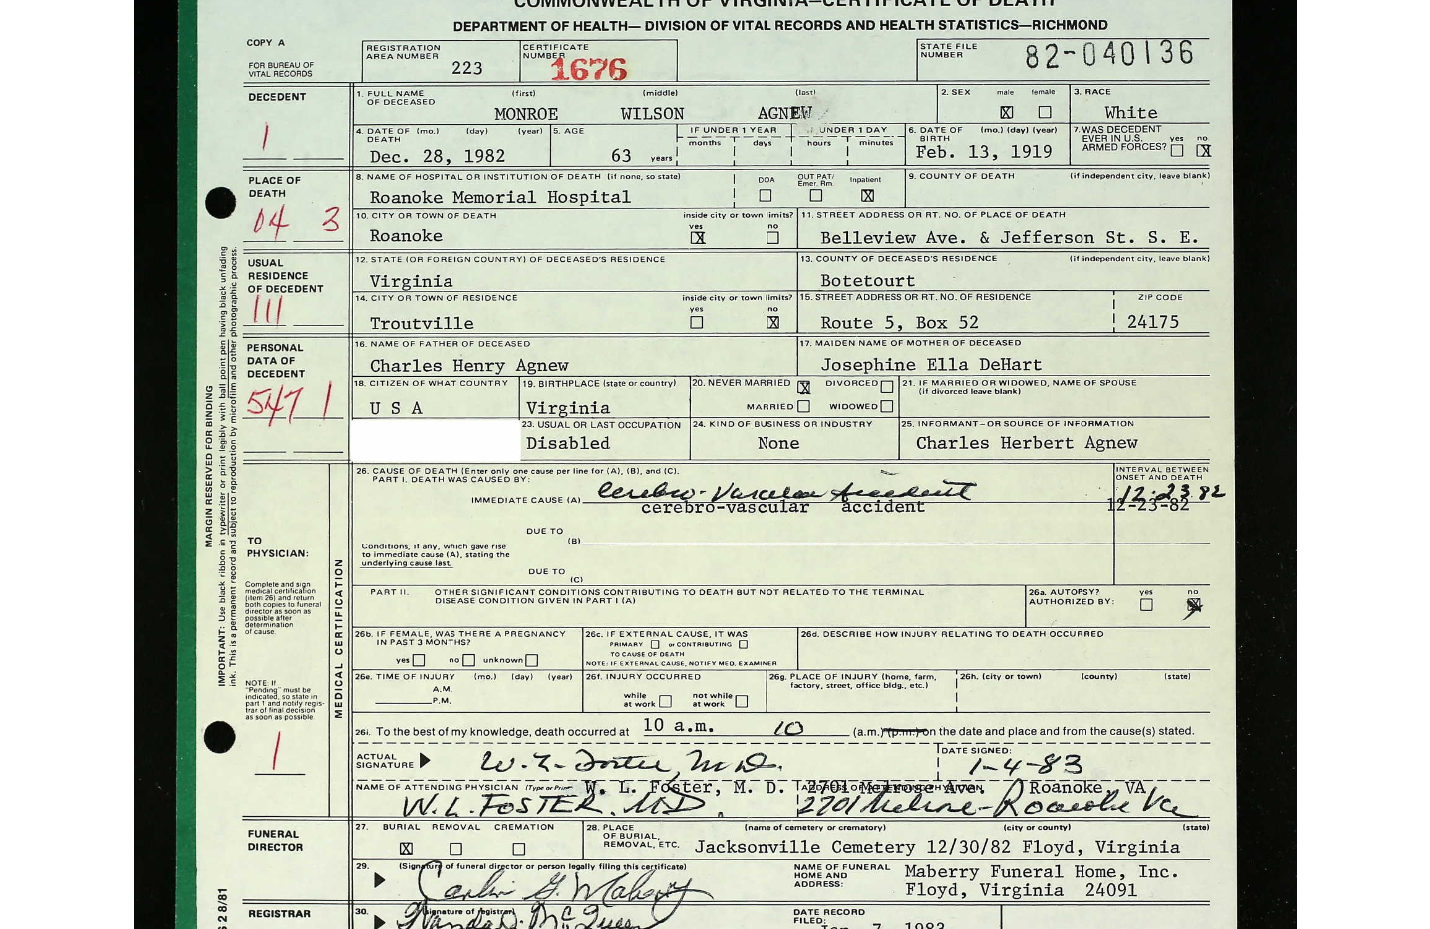 COMMONWEALTH OF VIRGINIA—CERTIFICATE OF DEATH
DEPARTMENT OF HEALTH— DIVISION OF VITAL RECORDS AND HEALTH STATISTICS—RICHMOND
COPY A
FOR BUREAU OF VITAL RECORDS
REGISTRATION AREA NUMBER 223
CERTIFICATE NUMBER 1676
STATE FILE NUMBER 82-040136
DECEDENT
1
1. FULL NAME OF DECEASED (first) (middle) (last)
MONROE WILSON AGNEW
2. SEX male female
X
3. RACE
White
4. DATE OF DEATH (mo.) (day) (year)
Dec. 28, 1982
5. AGE
63 years
IF UNDER 1 YEAR months days
IF UNDER 1 DAY hours minutes
6. DATE OF BIRTH (mo.) (day) (year)
Feb. 13, 1919
7. WAS DECEDENT EVER IN U.S. ARMED FORCES? yes no
X
PLACE OF DEATH
04 3
8. NAME OF HOSPITAL OR INSTITUTION OF DEATH (if none, so state)
Roanoke Memorial Hospital
DOA OUT PAT/ Emer. Rm. Inpatient
X
9. COUNTY OF DEATH (if independent city, leave blank)
10. CITY OR TOWN OF DEATH
Roanoke
inside city or town limits? yes no
X
11. STREET ADDRESS OR RT. NO. OF PLACE OF DEATH
Belleview Ave. & Jefferson St. S. E.
USUAL RESIDENCE OF DECEDENT
111
12. STATE (OR FOREIGN COUNTRY) OF DECEASED'S RESIDENCE
Virginia
13. COUNTY OF DECEASED'S RESIDENCE (if independent city, leave blank)
Botetourt
14. CITY OR TOWN OF RESIDENCE
Troutville
inside city or town limits? yes no
X
15. STREET ADDRESS OR RT. NO. OF RESIDENCE
Route 5, Box 52
ZIP CODE
24175
PERSONAL DATA OF DECEDENT
547 1
16. NAME OF FATHER OF DECEASED
Charles Henry Agnew
17. MAIDEN NAME OF MOTHER OF DECEASED
Josephine Ella DeHart
18. CITIZEN OF WHAT COUNTRY
U S A
19. BIRTHPLACE (state or country)
Virginia
20. NEVER MARRIED X DIVORCED
MARRIED WIDOWED
21. IF MARRIED OR WIDOWED, NAME OF SPOUSE (if divorced leave blank)
23. USUAL OR LAST OCCUPATION
Disabled
24. KIND OF BUSINESS OR INDUSTRY
None
25. INFORMANT—OR SOURCE OF INFORMATION
Charles Herbert Agnew
MARGIN RESERVED FOR BINDING
IMPORTANT: Use black ribbon in typewriter or print legibly with ball point pen having black unfading
ink. This is a permanent record and subject to reproduction by microfilm and other photographic process.
MEDICAL CERTIFICATION
TO PHYSICIAN:
Complete and sign
medical certification
(item 26) and return
both copies to funeral
director as soon as
possible after
determination
of cause.
NOTE: If
"Pending" must be
indicated, so state in
part 1 and notify regis-
trar of final decision
as soon as possible.
1
26. CAUSE OF DEATH (Enter only one cause per line for (A), (B), and (C).
PART I. DEATH WAS CAUSED BY:
INTERVAL BETWEEN ONSET AND DEATH
IMMEDIATE CAUSE (A) Cerebro-Vascular Accident 12-23 82
cerebro-vascular accident 12-23-82
DUE TO
(B)
Conditions, if any, which gave rise
to immediate cause (A), stating the
underlying cause last.
DUE TO
(C)
PART II. OTHER SIGNIFICANT CONDITIONS CONTRIBUTING TO DEATH BUT NOT RELATED TO THE TERMINAL
DISEASE CONDITION GIVEN IN PART I (A)
26a. AUTOPSY? AUTHORIZED BY: yes no
26b. IF FEMALE, WAS THERE A PREGNANCY
IN PAST 3 MONTHS?
yes no unknown
26c. IF EXTERNAL CAUSE, IT WAS
PRIMARY or CONTRIBUTING
TO CAUSE OF DEATH
NOTE: IF EXTERNAL CAUSE, NOTIFY MED. EXAMINER
26d. DESCRIBE HOW INJURY RELATING TO DEATH OCCURRED
26e. TIME OF INJURY (mo.) (day) (year)
A.M.
P.M.
26f. INJURY OCCURRED
while at work not while at work
26g. PLACE OF INJURY (home, farm,
factory, street, office bldg., etc.)
26h. (city or town) (county) (state)
26i. To the best of my knowledge, death occurred at 10 a.m. 10 (a.m.) (p.m.) on the date and place and from the cause(s) stated.
ACTUAL SIGNATURE W. L. Foster, M D.
DATE SIGNED: 1-4-83
NAME OF ATTENDING PHYSICIAN (Type or Print) W. L. Foster, M. D. 2701 Melrose Ave. Roanoke, VA
W.L. FOSTER. MD 2701 Melrose-Roanoke Va
FUNERAL DIRECTOR
27. BURIAL REMOVAL CREMATION
X
28. PLACE OF BURIAL, REMOVAL, ETC. (name of cemetery or crematory) (city or county) (state)
Jacksonville Cemetery 12/30/82 Floyd, Virginia
29. (Signature of funeral director or person legally filing this certificate)
NAME OF FUNERAL HOME AND ADDRESS:
Maberry Funeral Home, Inc.
Floyd, Virginia 24091
S 2 8/81
REGISTRAR
30. (signature of registrar)
DATE RECORD FILED:
Jan. 7, 1983